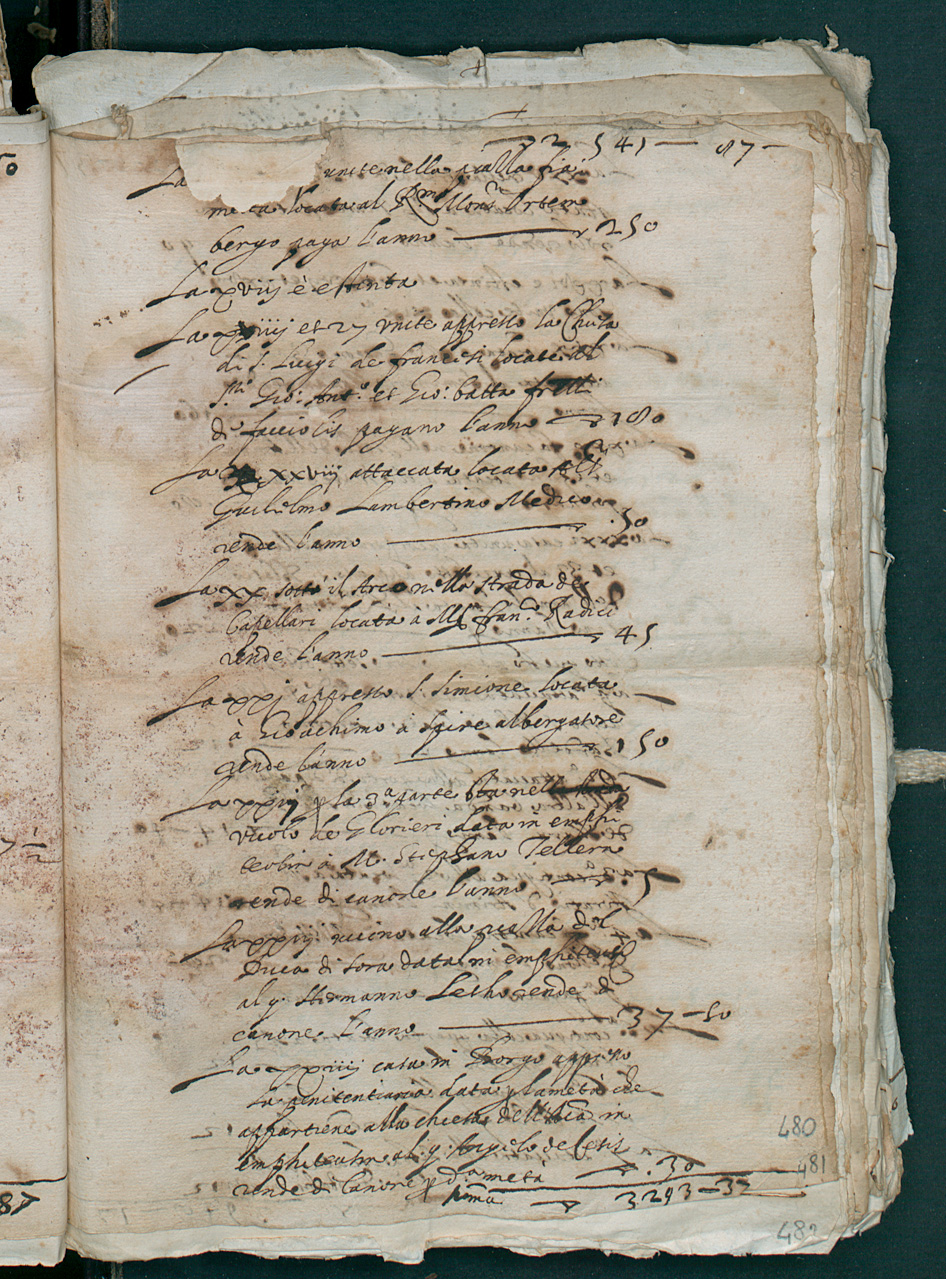 2541 — 87 —
La unite nella piazza fiam
meta locata al R.mo Mons.r Ortem
bergo paga l'anno — 250
La xviij è estinta
La xviiij et 27 unite appresso la Chiesa
di S. Luigi de francesi locate alli
S.ri Gio: Ant.o et Gio: batta fr'elli
di facciolis pagano l'anno — 180
La xxviij attaccata locata al S.r
Guilielmo Lambertino Medico
rende l'anno — 50
La xx sotto il Arco nella strada de
Capellari locata à M. fran.co Radici
rende l'anno — 45
La xxj appresso S. Simione locata
à Gioachimo à Spire albergatore
rende l'anno — 150
La xxij p la 3a parte nell
vicolo de Glorieri data in emphi
teosin à M. Stephano Tellern
rende di canone l'anno — 5
La xxiij vicino alla piazza del
Duca di Sora data in emphiteosi
al q. Hermanno Letho rende di
canone l'anno — 37 — 50
La xxiiij casa in Borgo appresso
La penitentiaria data p la metà che
appartiene alla chiesa dell'Ani.a in
emphiteosin al q. Angelo de Cesis
rende di Canone p d.a metà — 30
soma — 3293 — 37
480
481
482
87